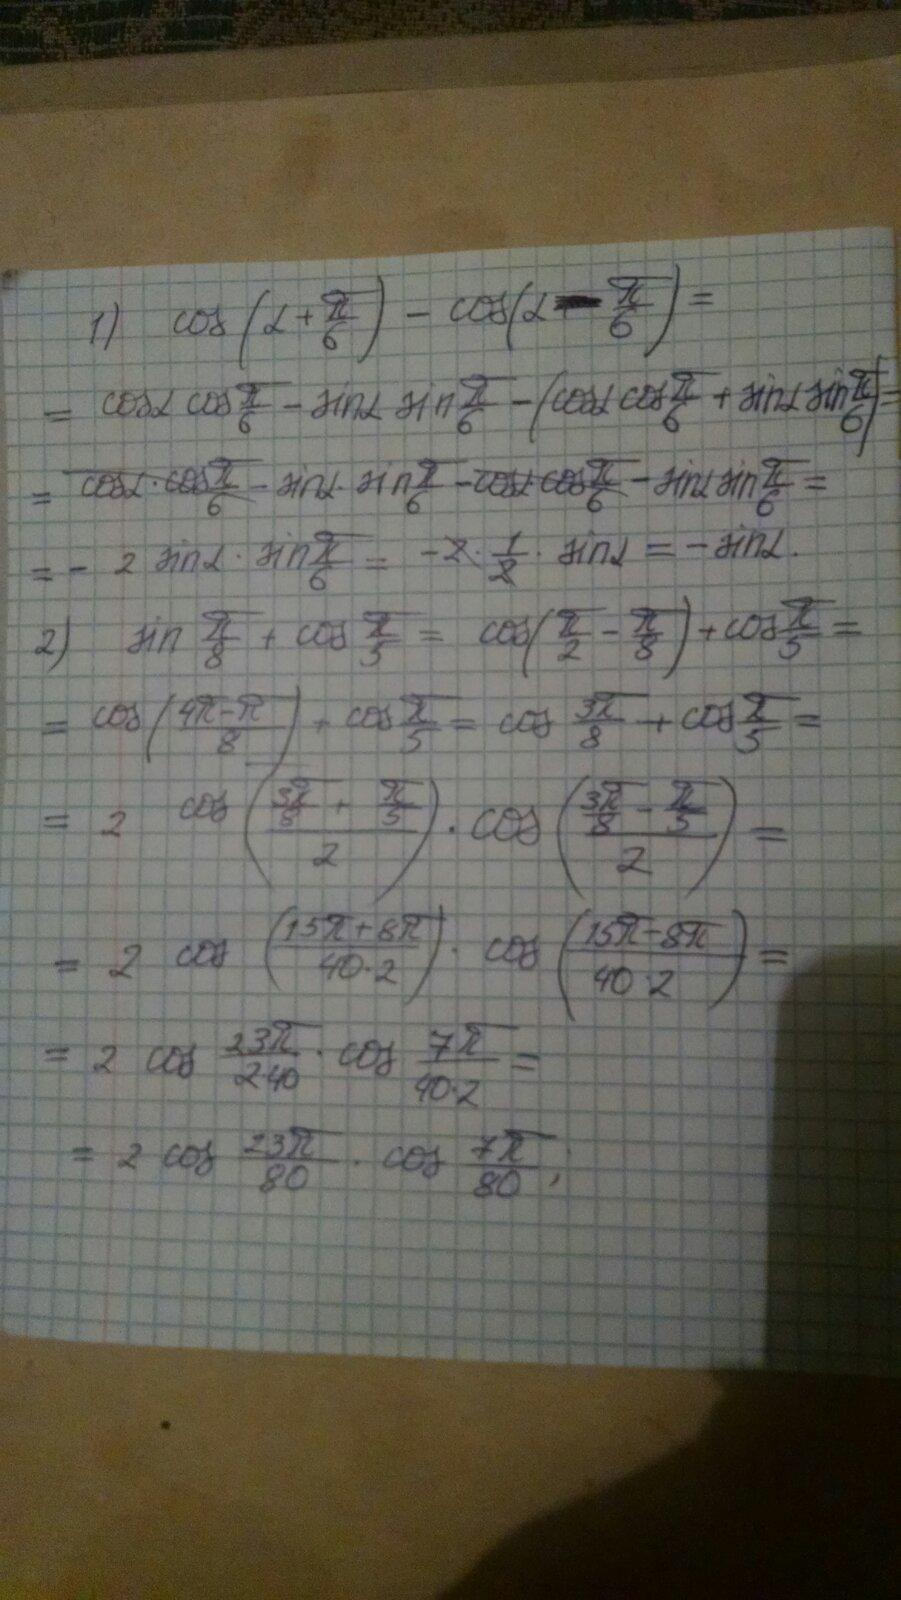 1) cos(α + π/6) - cos(α - π/6) =
= cosα cos π/6 - sinα sin π/6 - (cosα cos π/6 + sinα sin π/6) =
= cosα · cos π/6 - sinα · sin π/6 - cosα cos π/6 - sinα sin π/6 =
= - 2 sinα · sin π/6 = -2 · 1/2 · sinα = - sinα.
2) sin π/8 + cos π/5 = cos(π/2 - π/8) + cos π/5 =
= cos((4π-π)/8) + cos π/5 = cos 3π/8 + cos π/5 =
= 2 cos((3π/8 + π/5)/2) · cos((3π/8 - π/5)/2) =
= 2 cos((15π+8π)/(40·2)) · cos((15π-8π)/(40·2)) =
= 2 cos 23π/240 · cos 7π/(40·2) =
= 2 cos 23π/80 · cos 7π/80 ;